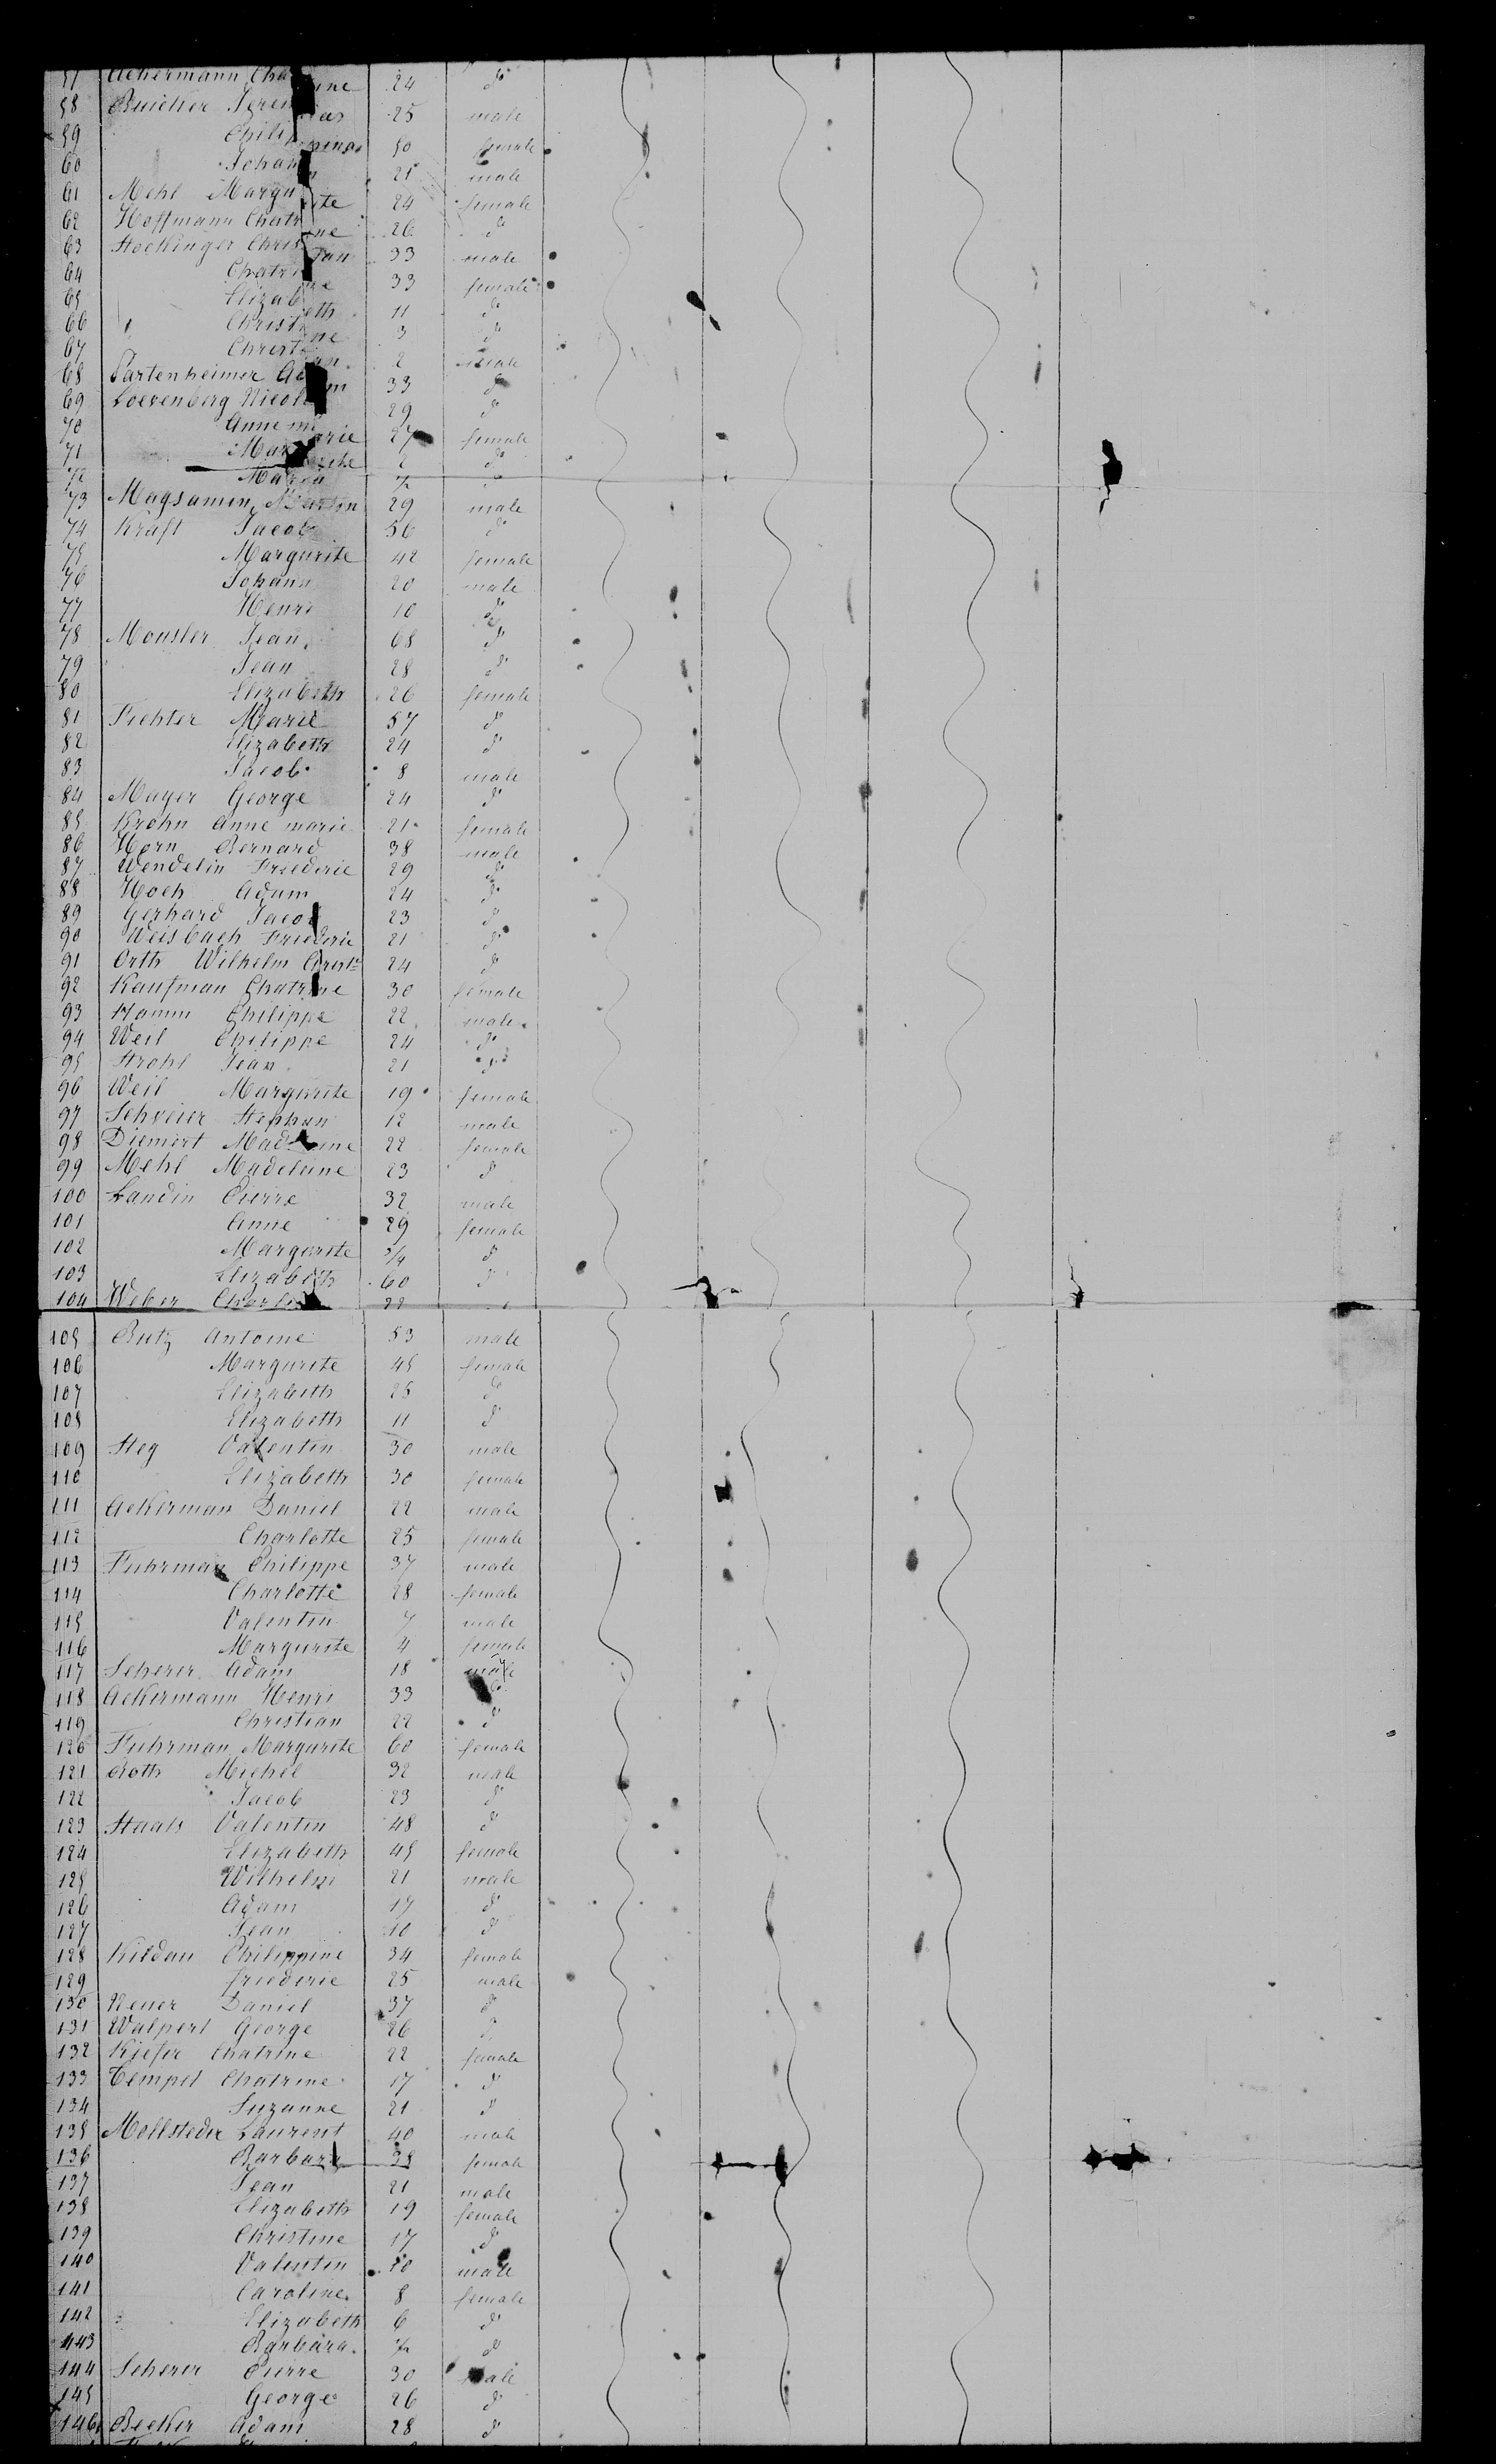 57 Ackermann Chatrine 24 do
58 Buicher Jeremias 25 male
59 Philippina 50 female
60 Johann 21 male
61 Mehl Margurite 24 female
62 Hoffmann Chatrine 26 do
63 Stockinger Christian 33 male
64 Chatrine 33 female
65 Elizabeth 11 do
66 " Christine 3 do
67 Christian 2 male
68 Partenheimer Adam 33 do
69 Loevenberg Nicolas 29 do
70 Anne marie 27 female
71 Margurite 2 do
72 Maria 1/2 do
73 Magsamen Martin 29 male
74 Kraft Jacob 56 do
75 Margurite 42 female
76 Johann 20 male
77 Henri 10 do
78 Mousler Jean 68 do
79 Jean 28 do
80 Elizabeth 26 female
81 Fichter Marie 57 do
82 Elizabeth 24 do
83 Jacob 8 male
84 Mayer George 24 do
85 Krohn Anne marie 21 female
86 Horn Bernard 38 male
87 Wendelin Friederic 29 do
88 Hoch Adam 24 do
89 Gerhard Jacob 23 do
90 Weisbach Friederic 21 do
91 Orth Wilhelm 24 do
92 Kaufman Chatrine 30 female
93 Hamm Philippe 22 male
94 Weil Philippe 24 do
95 Strohl Jean 21 do
96 Weil Margurite 19 female
97 Schveier Stephan 12 male
98 Diemert Madeleine 22 female
99 Mehl Madeleine 23 do
100 Landin Pierre 32 male
101 Anne 29 female
102 Margurite 3/4 do
103 Elizabeth 60 do
104 Weber 22
105 Butz Antoine 53 male
106 Margurite 45 female
107 Elizabeth 25 do
108 Elizabeth 11 do
109 Steg Valentin 30 male
110 Elizabeth 30 female
111 Ackerman Daniel 22 male
112 Charlotte 25 female
113 Fuhrman Philippe 37 male
114 Charlotte 28 female
115 Valentin 7 male
116 Margurite 4 female
117 Scherer Adam 18 male
118 Ackermann Henri 33 do
119 Christian 22 do
120 Fuhrman Margurite 60 female
121 Roth Michel 32 male
122 Jacob 23 do
123 Staab Valentin 48 do
124 Elizabeth 45 female
125 Wilhelm 21 male
126 Adam 17 do
127 Jean 10 do
128 Kildau Philippine 34 female
129 friederic 25 male
130 Neuer Daniel 37 do
131 Walpert George 26 do
132 Kiefer Chatrine 22 female
133 Tempel Chatrine 17 do
134 Suzanne 21 do
135 Mollsteder Laurent 40 male
136 Barbara 38 female
137 Jean 21 male
138 Elizabeth 19 female
139 Christine 17 do
140 Valentin 10 male
141 Caroline 8 female
142 Elizabeth 6 do
143 Barbara 1/2 do
144 Scherer Pierre 30 male
145 George 26 do
146 Becker Adam 28 do